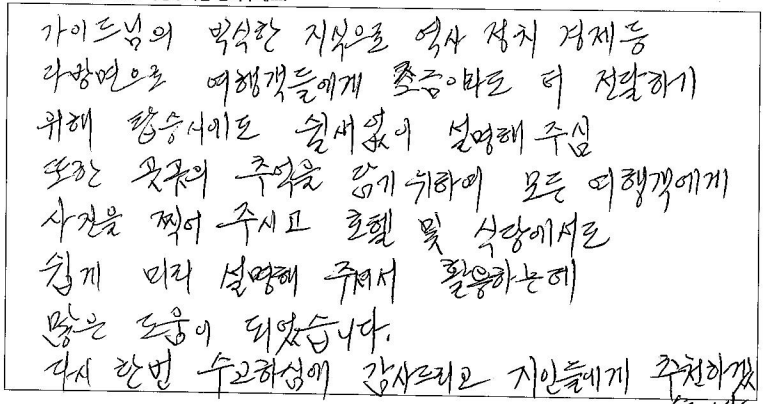 가이드님의 박식한 지식으로 역사 정치 경제등
다방면으로 여행객들에게 쪼금이라도 더 전달하기
위해 탑승시에도 쉴새없이 설명해 주심
또한 곳곳의 추억을 담기 위하여 모든 여행객에게
사진을 찍어 주시고 호텔 및 식당에서도
쉽게 미리 설명해 주셔서 활용하는데
많은 도움이 되었습니다.
다시 한번 수고하심에 감사드리고 지인들에게 추천하겠